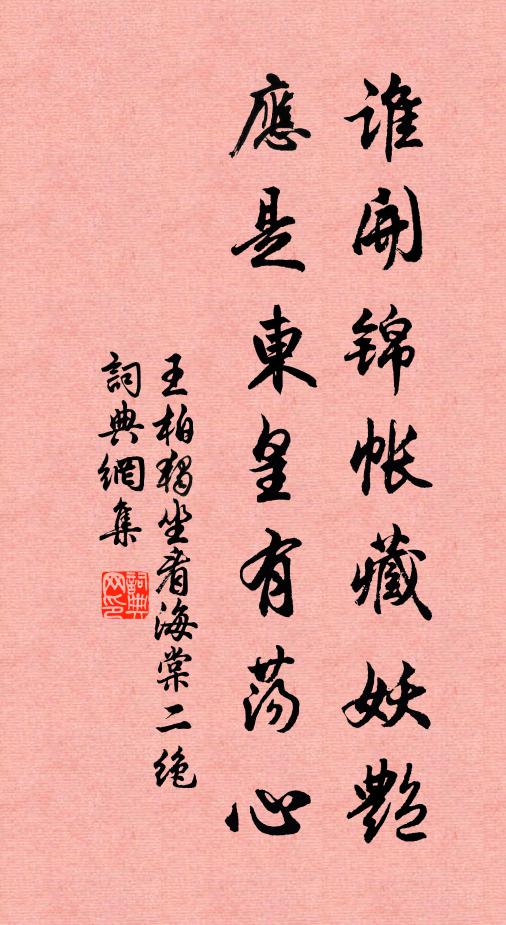 誰開錦帳藏妖艷
應是東皇有蕩心
王柏獨坐看海棠二絕
詞典網集
詞典網印